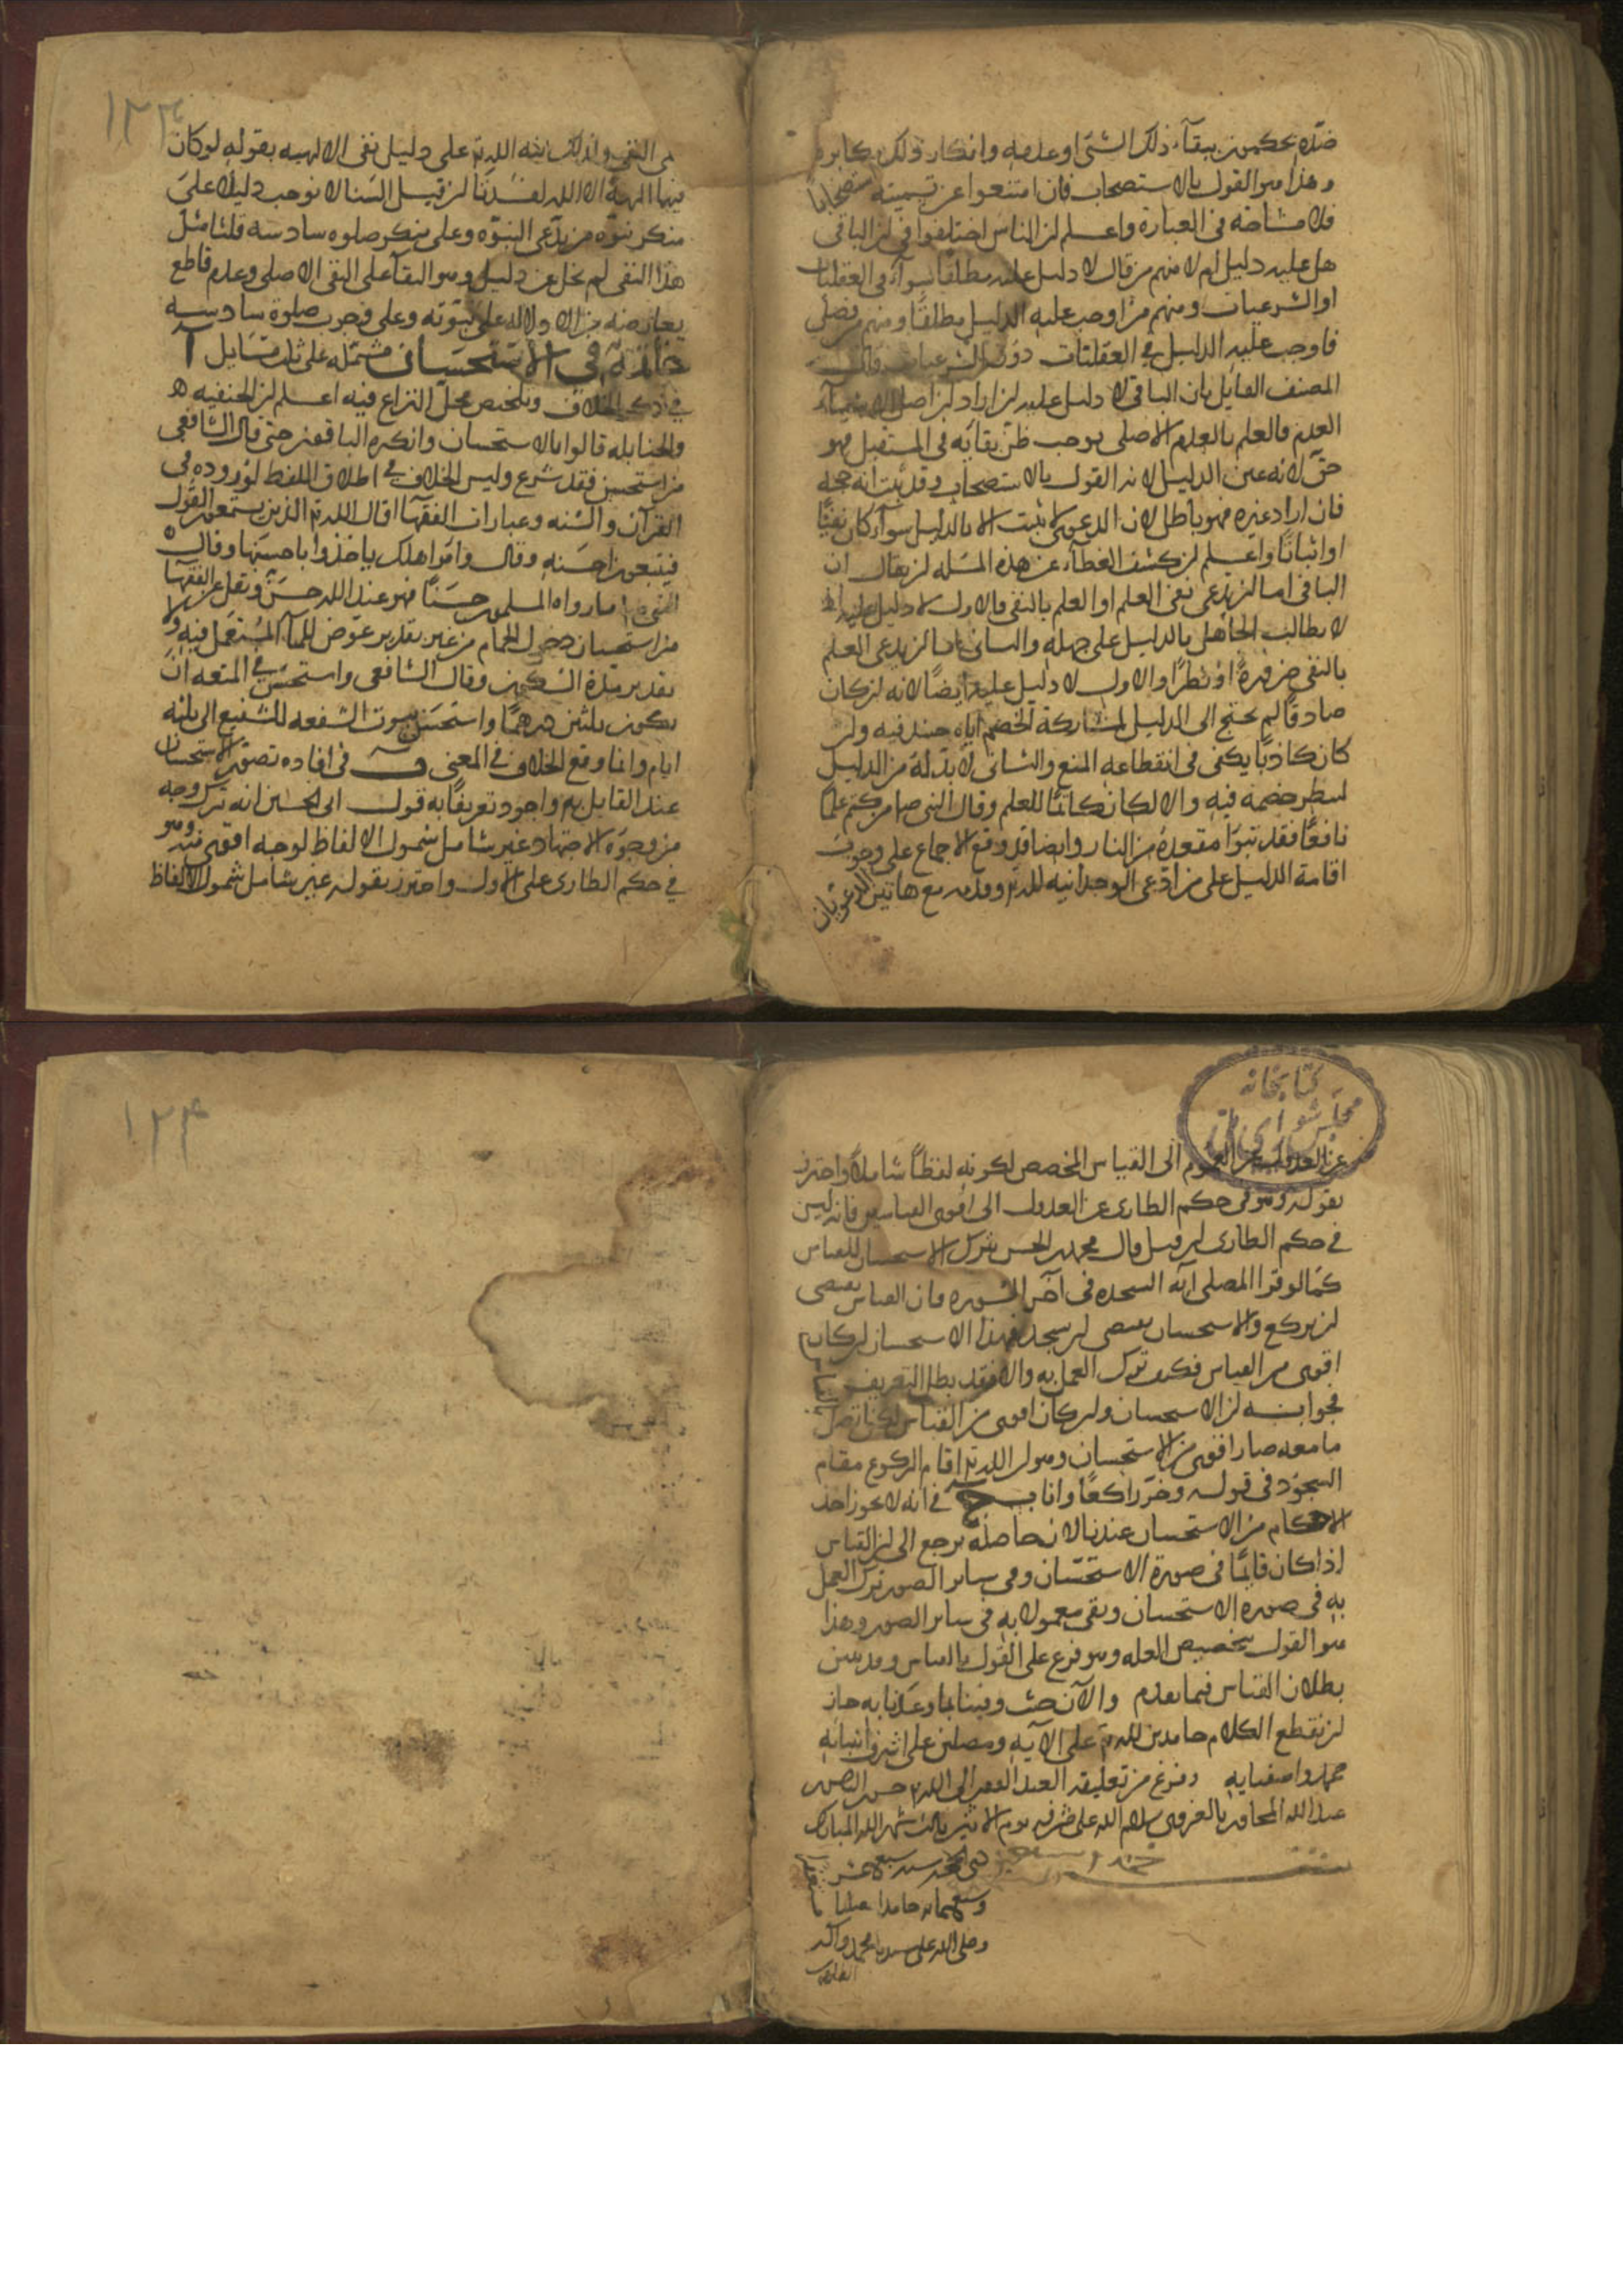 ضده يحكمون ببقآء ذلك الشئ او عدمه وانكار ذلك مكابرة
وهذا هو القول بالاستصحاب فان امتنعوا عن تسميته استصحابا
فلا مشاحة فى العبارة واعلم ان الناس اختلفوا فى ان النافى
هل عليه دليل ام لا منهم من قال لا دليل عليه مطلقا سوآء فى العقليات
او الشرعيات ومنهم من اوجب عليه الدليل مطلقا ومنهم من فصل
فاوجب عليه الدليل فى العقليات دون الشرعيات
المصنف القايل بان النافى لا دليل عليه ان اراد ان اصل الاشيآء
العدم والعلم بالعدم الاصلى يوجب ظن بقائه فى المستقبل فهو
حق لانه عين الدليل لانه القول بالاستصحاب وقد ثبت انه حجة
فان اراد غيره فهو باطل لان الدعوى لا يثبت الا بالدليل سوآء كان نفيًا
او اثباتًا واعلم ان كشف الغطآء عن هذه المسله ان يقال ان
النافى اما ان يدعى نفى العلم او العلم بالنفى والاول لا دليل عليه اذ
لا يطالب الجاهل بالدليل على جهله والثانى اما ان يدعى العلم
بالنفى ضرورةً او نظرًا والاول لا دليل عليه ايضًا لانه ان كان
صادقًا لم يحتج الى الدليل لمشاركة الخصم اياه حينئذ فيه وان
كان كاذبًا يكفى فى انقطاعه المنع والثانى لا بد له من الدليل
لينظر خصمه فيه والا لكان كاتمًا للعلم وقال النبى ص من كتم علمًا
نافعًا فقد تبوّا مقعده من النار وايضا قد وقع الاجماع على وجوب
اقامة الدليل على من ادّعى الوحدانيه لله تع وقدمه مع هاتين الدعوتان
١٣٣
الى النفى ولذلك نبه الله تع على دليل نفى الالهيه بقوله لو كان
فيهما الهة الا الله لفسدتا ان قيل السنا لا نوجب دليلا على
منكر نبوّه من يدّعى النبوّه وعلى منكر صلوه سادسه قلنا مثل
هذا النفى لم يخل عن دليل وهو البقآ على النفى الاصلى وعدم قاطع
يعارضه من الا دلاله على نبوّته وعلى وجوب صلوة سادسه
خاتمة فى الاستحسان مشتمله على ثلث مسايل آ
فى ذكر الخلاف وتلخيص محل النزاع فيه اعلم ان الحنفيه
والحنابله قالوا بالاستحسان وانكره الباقون حتى قال الشافعى
من استحسن فقد شرع وليس الخلاف فى اطلاق اللفظ لوروده فى
القرآن والسنه وعبارات الفقهآ قال الله تع الذين يستمعون القول
فيتبعون احسنه وقال وامر اهلك ياخذوا باحسنها وقال
النبى ص ما رواه المسلمون حسنًا فهو عند الله حسن ونقل عن الفقهآ
من استحسان دخول الحمام من غير تقدير عوض للمآء المستعمل فيه ولا
تقدير مدة السكون وقال الشافعى واستحسن فى المتعه ان
يكون ثلثين درهمًا واستحسن ثبوت الشفعه للشفيع الى ثلثه
ايام وانما وقع الخلاف فى المعنى ب فى افاده تصور الاستحسان
عند القايل به واجود تعريفًا به قول ابى الحسين انه ترك وجه
من وجوه الاجتهاد غير شامل شمول الالفاظ لوجه اقوى منه وهو
فى حكم الطارى على الاول واحترز بقوله غير شامل شمول الالفاظ
كتابخانه
مجلس شوراى ملى
عن العدول عن العموم الى القياس المخصص لكونه لفظًا شاملا واحترز
بقوله وهو فى حكم الطارى عن العدول الى اقوى القياسين فانه ليس
فى حكم الطارى ان قيل قال محمد بن الحسن بترك الاستحسان للقياس
كما لو قرا المصلى اية السجده فى آخر السوره فان القياس يقتضى
ان يركع والاستحسان يقتضى ان يسجد فهذا الاستحسان ان كان
اقوى من القياس فكيف ترك العمل به والا فقد بطل التعريف
فجوابه ان الاستحسان وان كان اقوى من القياس لكن اتصل
ما معه صار اقوى من الاستحسان وهو ان الله تع اقام الركوع مقام
السجود فى قوله وخر راكعًا واناب ج فى انه لا يجوز اخذ
الاحكام من الاستحسان عندنا لان حاصله يرجع الى ان القياس
اذا كان قايمًا فى صورة الاستحسان وفى ساير الصور ترك العمل
به فى صوره الاستحسان وبقى معمولا به فى ساير الصور وهذا
هو القول بتخصيص العله وهو فرع على القول بالقياس وقد تبين
بطلان القياس فيما تقدم والآن حيث وفينا بما وعدنا به حان
ان نقطع الكلام حامدين لله تع على الآيه ومصلين على اشرف انبيائه
محمد واصفيايه وفرغ من تعليقه العبد الفقير الى الله تع حسن
عبد الله المجاور بالغروى سلام الله على مشرفه يوم الاثنين ثالث شهر الله المبارك
ذى الحجه سنه سبع عشر
وسبعمايه حامدا مصليا
وصلى الله على سيدنا محمد وآله
الطاهرين
١٣٤